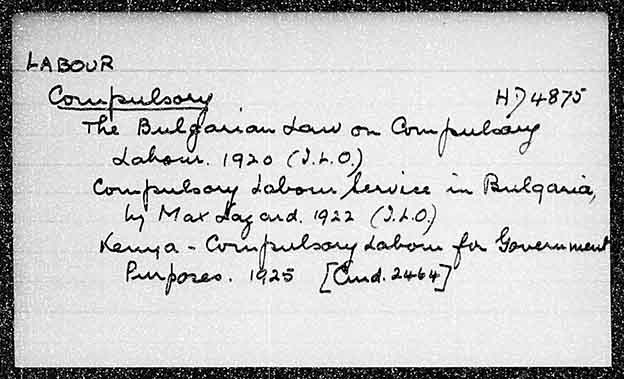 LABOUR
Compulsory HD4875
The Bulgarian Law on Compulsory
Labour. 1920 (I.L.O.)
Compulsory Labour Service in Bulgaria,
by Max Lazard. 1922 (I.L.O.)
Kenya - Compulsory Labour for Government
Purposes. 1925 [Cmd. 2464]